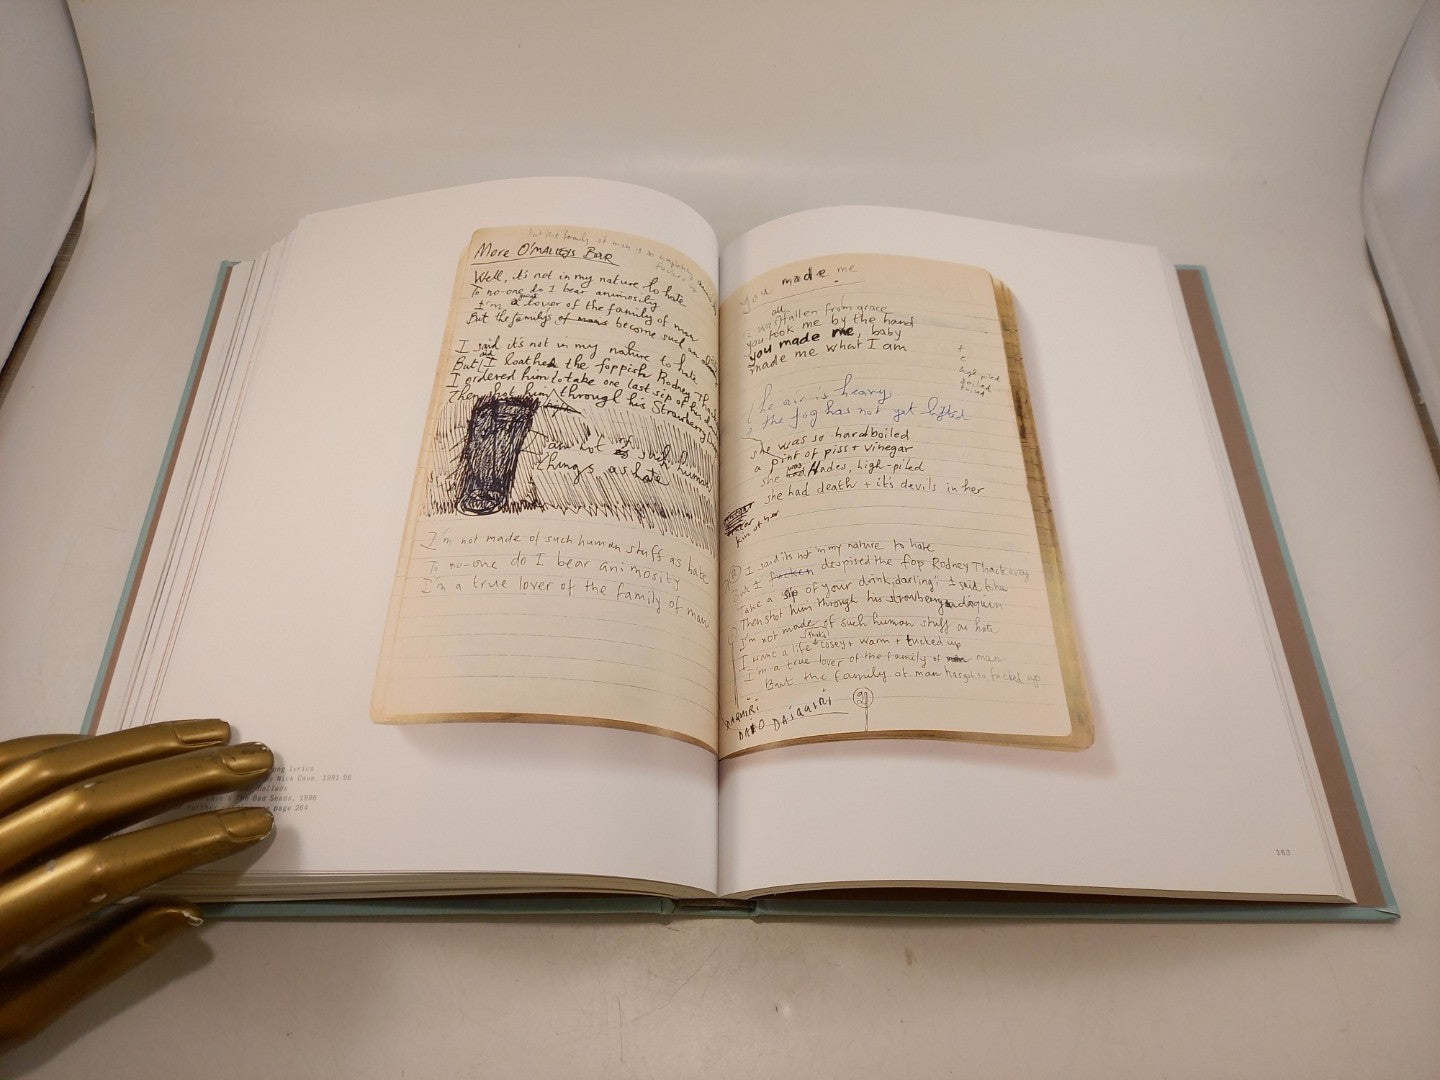 but the family of man is so completely
More O'MALLEYS BAR
Well, it's not in my nature to hate
To no-one do I bear animosity
I'm a lover of the family of man
But the family's of man's become such an
I said it's not in my nature to hate
But I loathed the foppish Rodney
I ordered him to take one last sip of his
Then shot him through his Strawberry
am not such human
things as hate
I'm not made of such human stuff as hate
To no-one do I bear animosity
I'm a true lover of the family of man
ong lyrics
Nick Cave, 1991-96
Ballads
The Bad Seeds, 1996
further page 264
You made me
all
I was fallen from grace
you took me by the hand
you made me, baby
made me what I am
+
c
high piled
The air is heavy
the fog has not yet lifted
she was so hardboiled
a pint of piss + vinegar
she was Hades, high-piled
she had death + it's devils in her
I said its not in my nature to hate
But I despised the fop Rodney Thackeray
Take a sip of your drink, darling, I said to him
Then shot him through his strawberry daiquiri
I'm not made of such human stuff as hate
I want a life cosey + warm + tucked up
I'm a true lover of the family of man
But the family of man has got so fucked up
DAIQUIRI
163